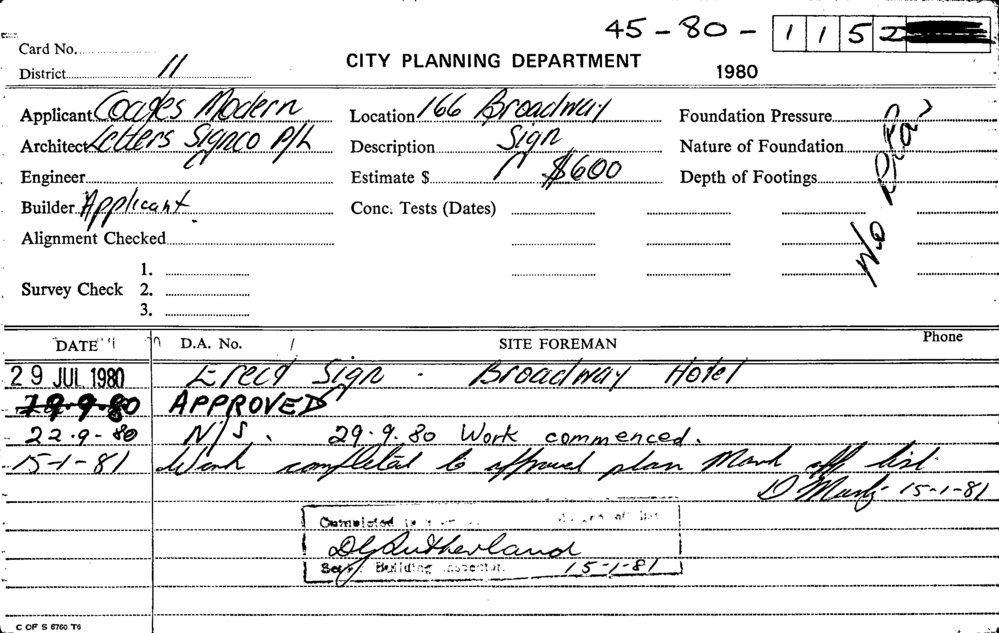 45-80- 1 1 5 2
Card No.
District 11
CITY PLANNING DEPARTMENT
1980
Applicant Coades Modern
Architect Letters Signco P/L
Engineer
Builder Applicant.
Alignment Checked
Survey Check 1.
2.
3.
Location 166 Broadway
Description Sign
Estimate $ $600
Conc. Tests (Dates)
Foundation Pressure
Nature of Foundation
Depth of Footings
No
DATE D.A. No. / SITE FOREMAN Phone
29 JUL 1980 Erect Sign - Broadway Hotel
19.9.80 APPROVED
22.9-80 N/S. 29.9.80 Work commenced.
15-1-81 Work completed to approved plan Mark off list
15-1-81
Completed
DG Sutherland
Building Inspector. 15-1-81
C OF S 6760 T6